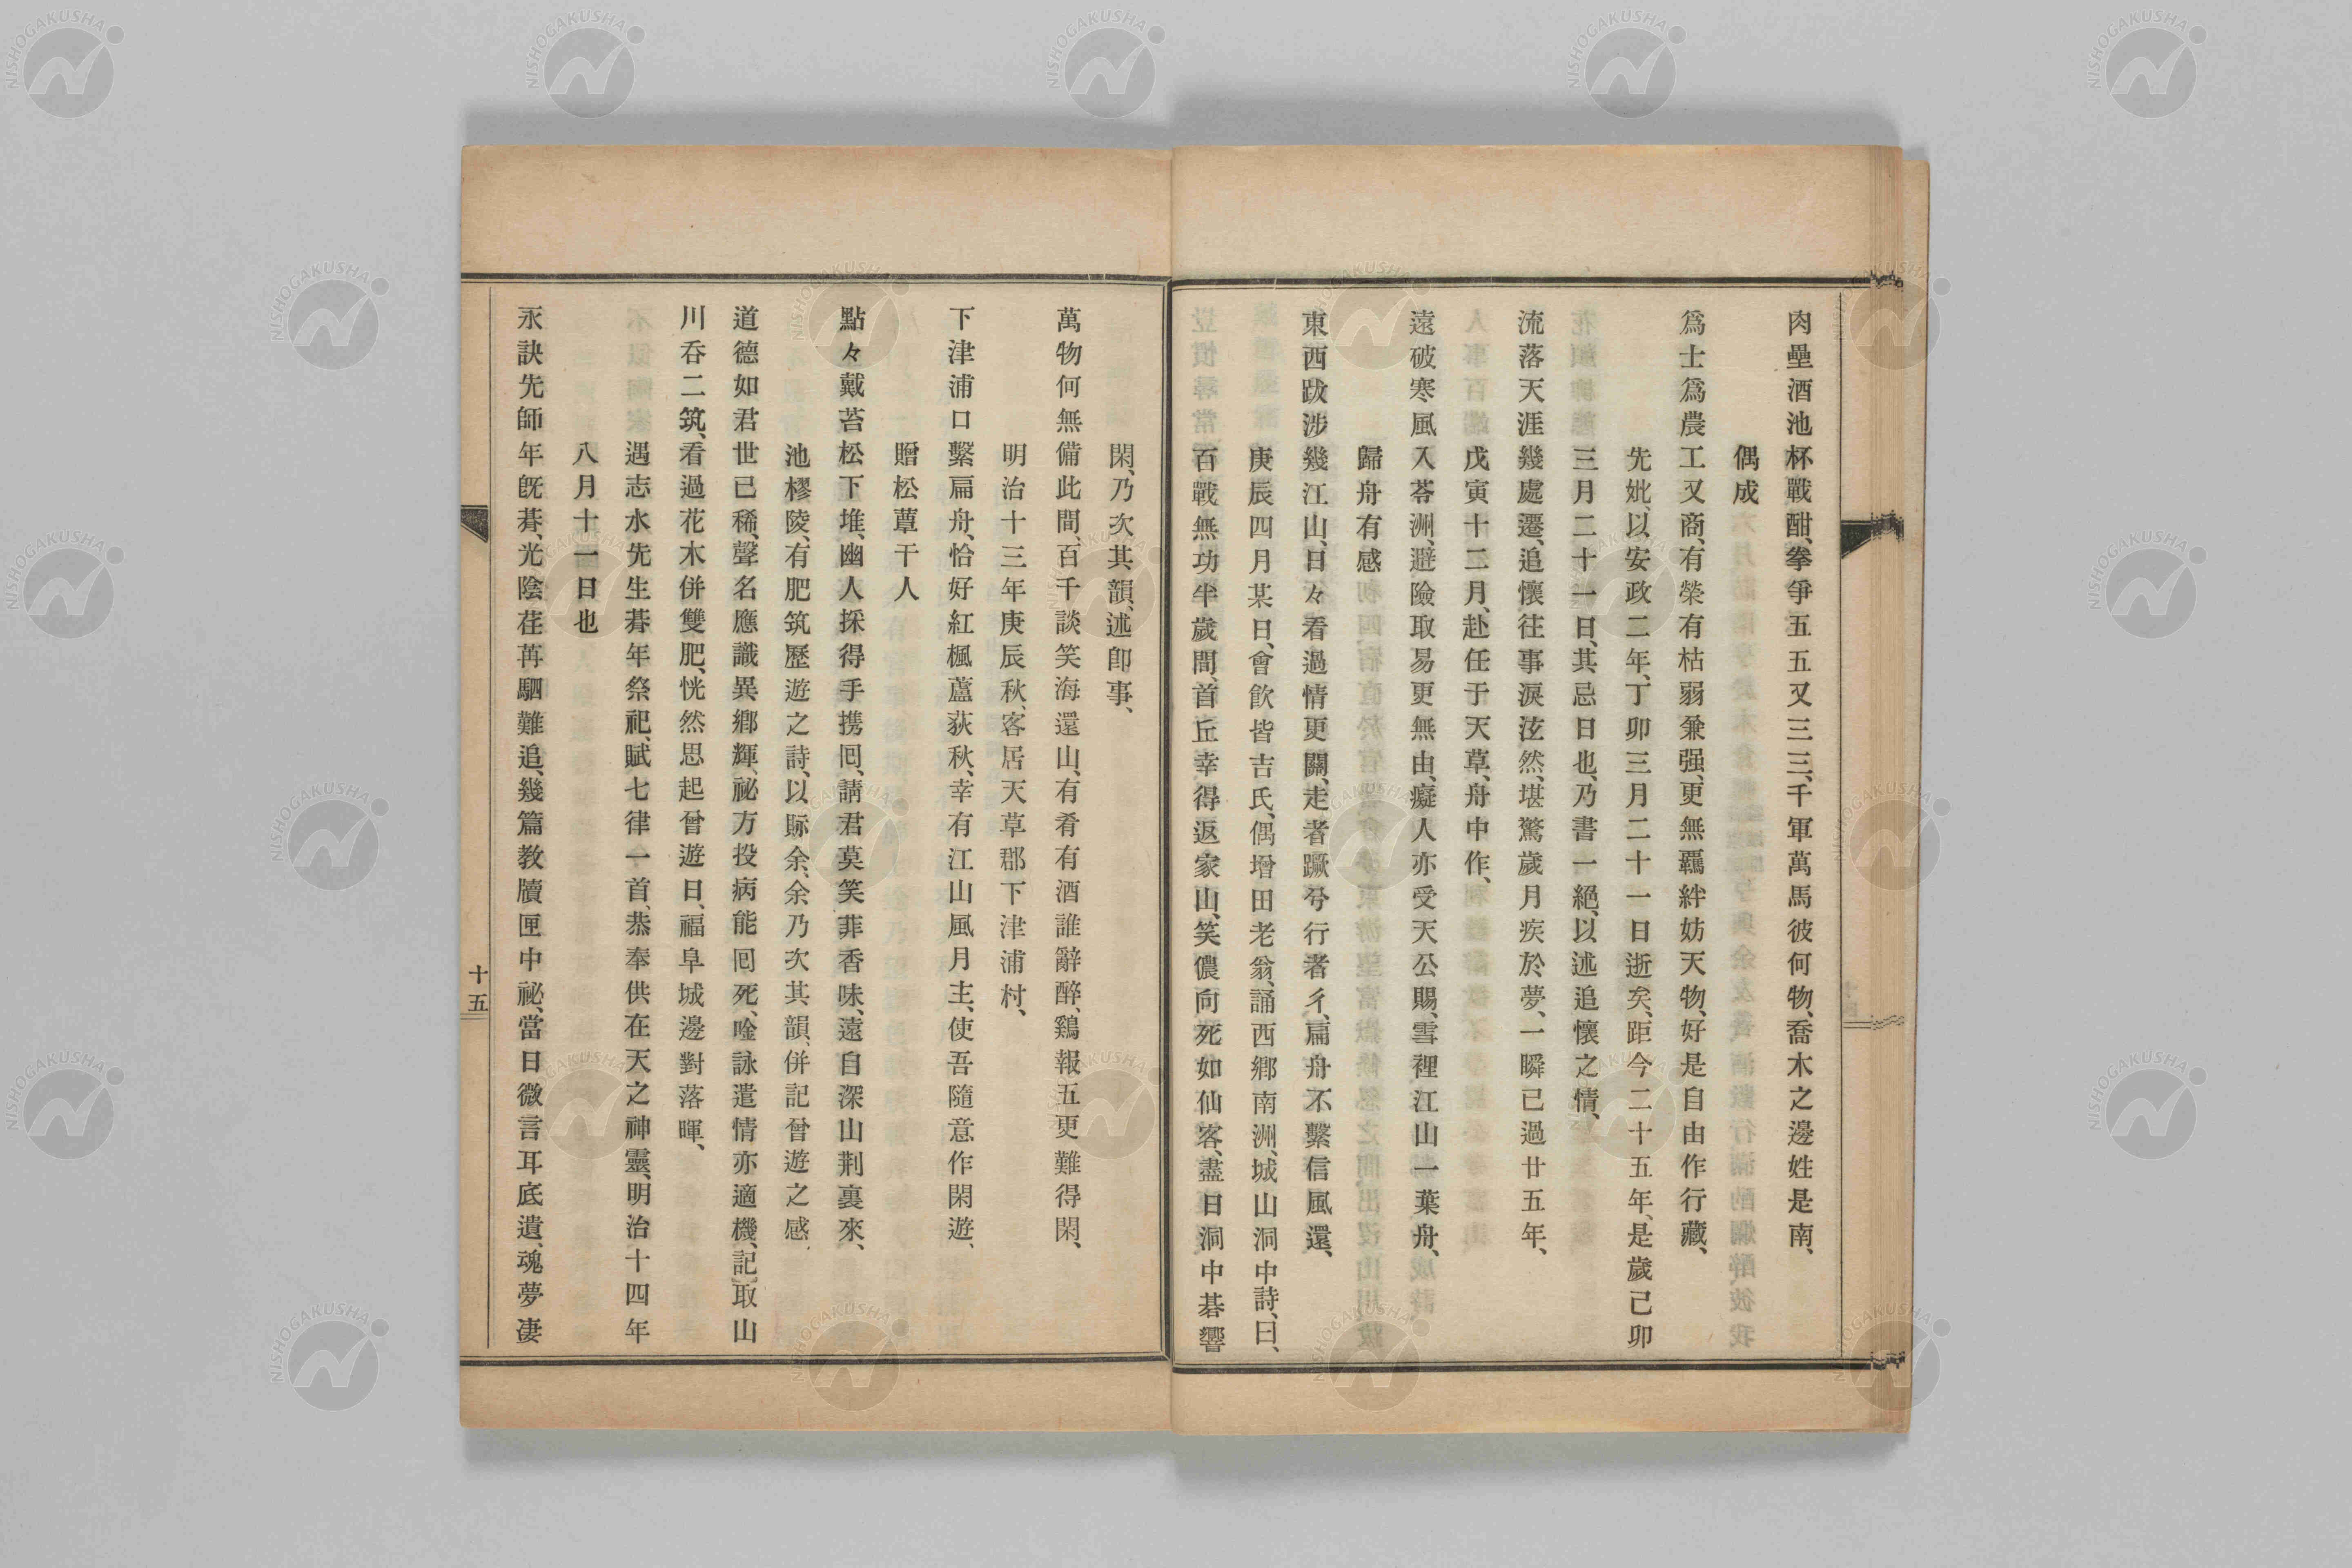 肉壘酒池杯戰酣、拳爭五五又三三、千軍萬馬彼何物、喬木之邊姓是南、
偶成
爲士爲農工又商、有榮有枯弱兼强、更無羈絆妨天物、好是自由作行藏、
先妣、以安政二年、丁卯三月二十一日逝矣、距今二十五年、是歲己卯
三月二十一日、其忌日也、乃書一絕、以述追懷之情、
流落天涯幾處遷、追懷往事淚泫然、堪驚歲月疾於夢、一瞬已過廿五年、
戊寅十二月、赴任于天草、舟中作、
遠破寒風入苓洲、避險取易更無由、癡人亦受天公賜、雪裡江山一葉舟、
歸舟有感
東西跋涉幾江山、日々看過情更關、走者蹶兮行者彳、扁舟不繫信風還、
庚辰四月某日、會飲皆吉氏、偶增田老翁、誦西鄉南洲、城山洞中詩、曰、
百戰無功半歲間、首丘幸得返家山、笑儂向死如仙客、盡日洞中碁響
閑、乃次其韻、述卽事、
萬物何無備此間、百千談笑海還山、有肴有酒誰辭醉、鷄報五更難得閑、
明治十三年庚辰秋、客居天草郡下津浦村、
下津浦口繫扁舟、恰好紅楓蘆荻秋、幸有江山風月主、使吾隨意作閑遊、
贈松蕈干人
點々戴苔松下堆、幽人採得手携回、請君莫笑菲香味、遠自深山荆裏來、
池樛陵、有肥筑歷遊之詩、以眎余、余乃次其韻、併記曾遊之感、
道德如君世已稀、聲名應識異鄉輝、祕方投病能回死、唫詠遣情亦適機、記取山
川吞二筑、看過花木併雙肥、恍然思起曾遊日、福阜城邊對落暉、
遇志水先生朞年祭祀、賦七律一首、恭奉供在天之神靈、明治十四年
八月十一日也
永訣先師年旣朞、光陰荏苒駟難追、幾篇教牘匣中祕、當日微言耳底遺、魂夢凄
十五